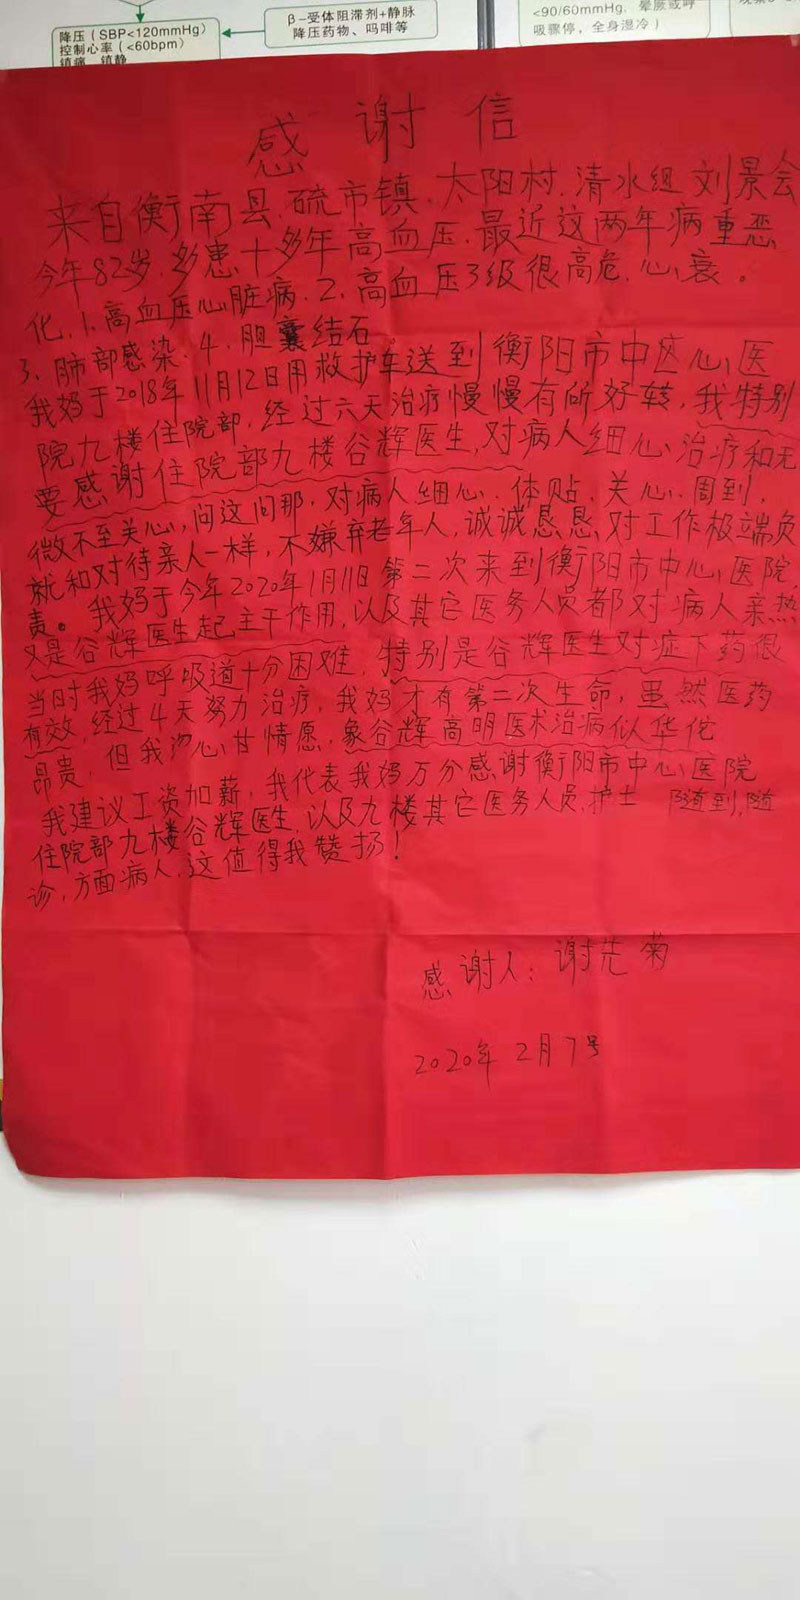 降压（SBP<120mmHg）
控制心率（<60bpm）
镇痛、镇静
β-受体阻滞剂+静脉
降压药物、吗啡等
<90/60mmHg、晕厥或呼
吸骤停，全身湿冷）
感谢信
来自衡南县、硫市镇、太阳村、清水组刘景会
今年82岁、多患十多年高血压、最近这两年病重恶
化、1、高血压心脏病、2、高血压3级很高危、心衰。
3、肺部感染、4、胆囊结石。
我妈于2018年11月12日用救护车送到衡阳市中心医
院九楼住院部，经过六天治疗慢慢有所好转，我特别
要感谢住院部九楼谷辉医生，对病人细心治疗和无
微不至关心，问这问那，对病人细心、体贴、关心、周到，
就和对待亲人一样，不嫌弃老年人，诚诚恳恳对工作极端负
责。我妈于今年2020年1月11日第二次来到衡阳市中心医院，
又是谷辉医生起主干作用，以及其它医务人员都对病人亲热
当时我妈呼吸道十分困难，特别是谷辉医生对症下药很
有效，经过4天努力治疗，我妈才有第二次生命，虽然医药
昂贵，但我心甘情愿，象谷辉高明医术治病似华佗
我建议工资加薪，我代表我妈万分感谢衡阳市中心医院
住院部九楼谷辉医生，以及九楼其它医务人员，护士 随到，随
诊，方面病人，这值得我赞扬！
感谢人：谢先菊
2020年2月7号